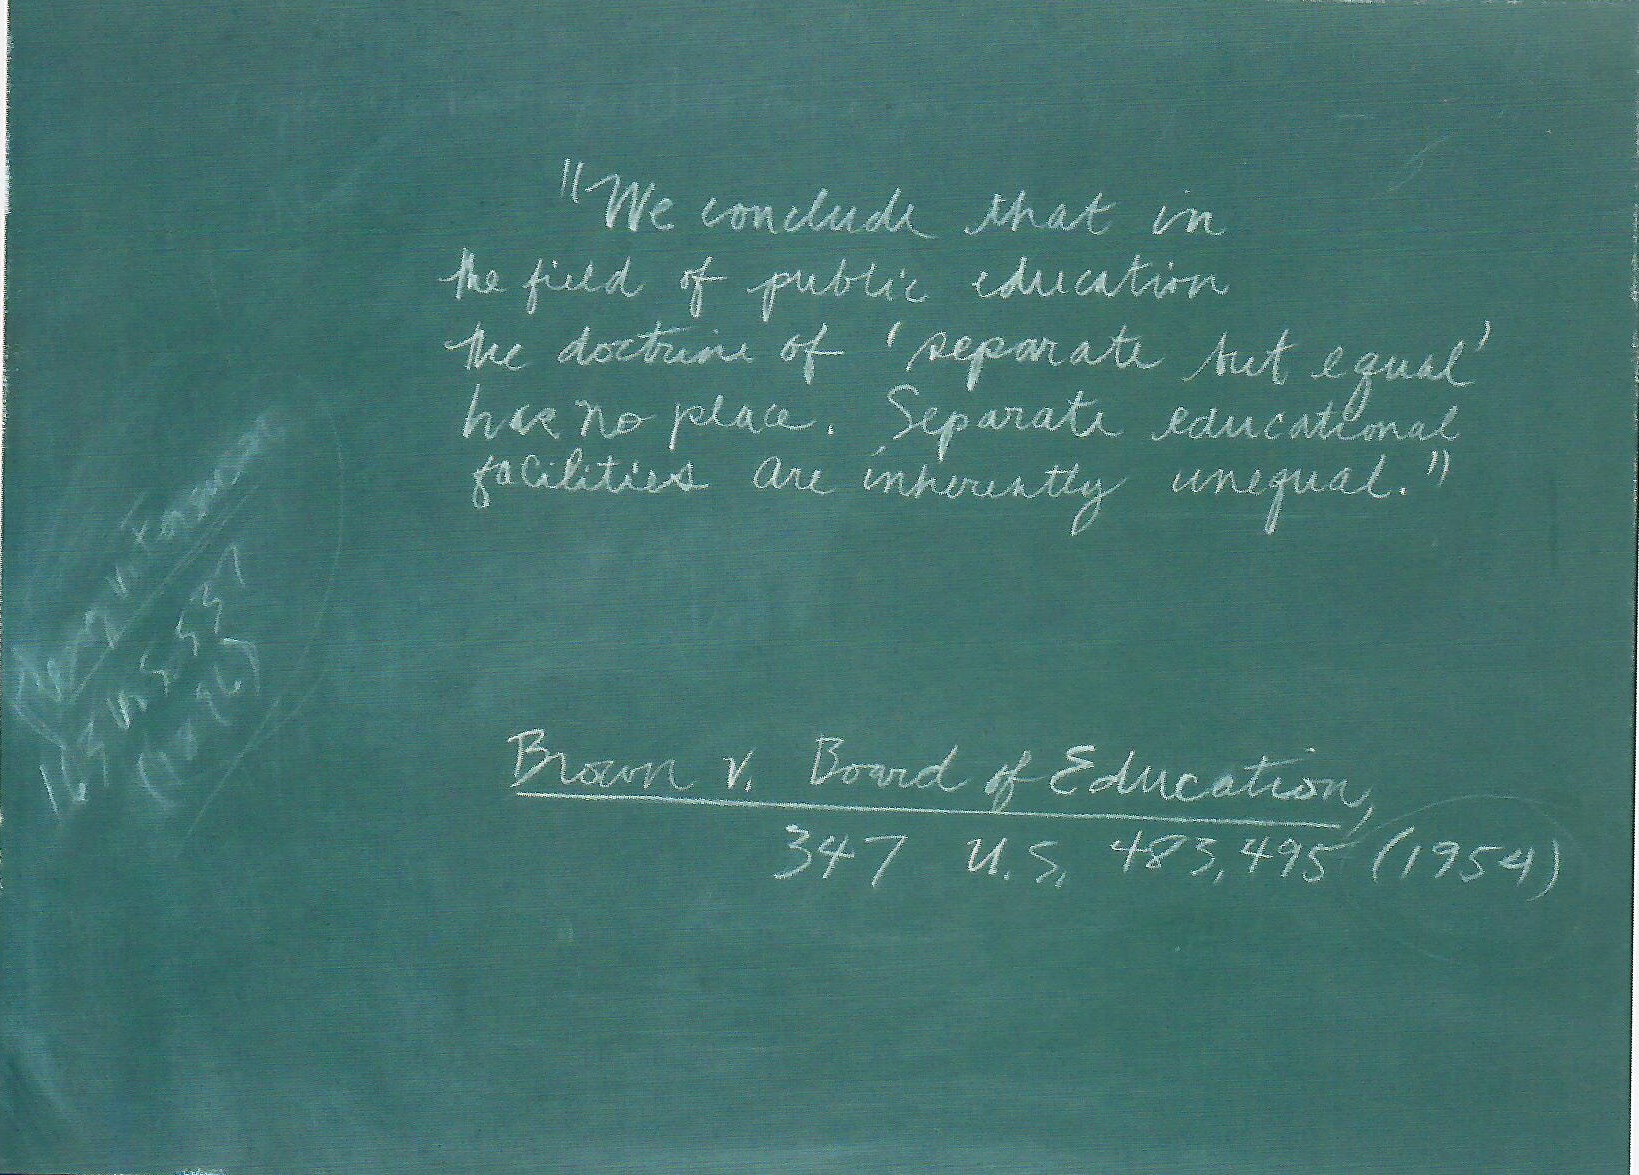 "We conclude that in
the field of public education
the doctrine of 'separate but equal'
has no place. Separate educational
facilities are inherently unequal."
Brown v. Board of Education,
347 U.S. 483, 495 (1954)